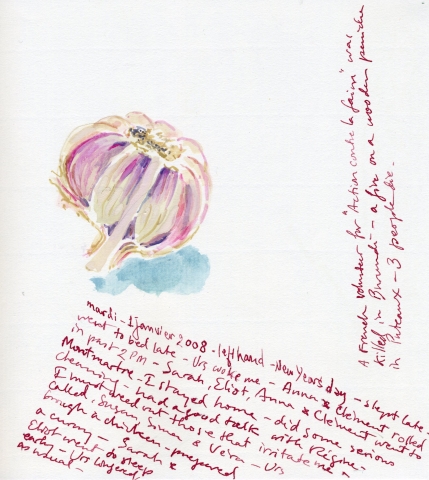 mardi - 1 janvier 2008 - left hand - New Years day - slept late -
went to bed late - Urs woke me - Anna & Clément rolled
in past 2 PM - Sarah, Eliot, Anna & Clément went to
Montmartre. I stayed home - did some serious
cleaning - had a good talk with Régine -
I must weed out those that irritate me -
called Susan, Simon & Vera - Urs
brought a chicken - prepared
a curry - Sarah &
Eliot went to sleep
early - Urs lingered
as usual -
A French volunteer for "Action contre la faim" was
killed in Burundi -- a fire on a wooden péniche
in Puteaux - 3 people die -